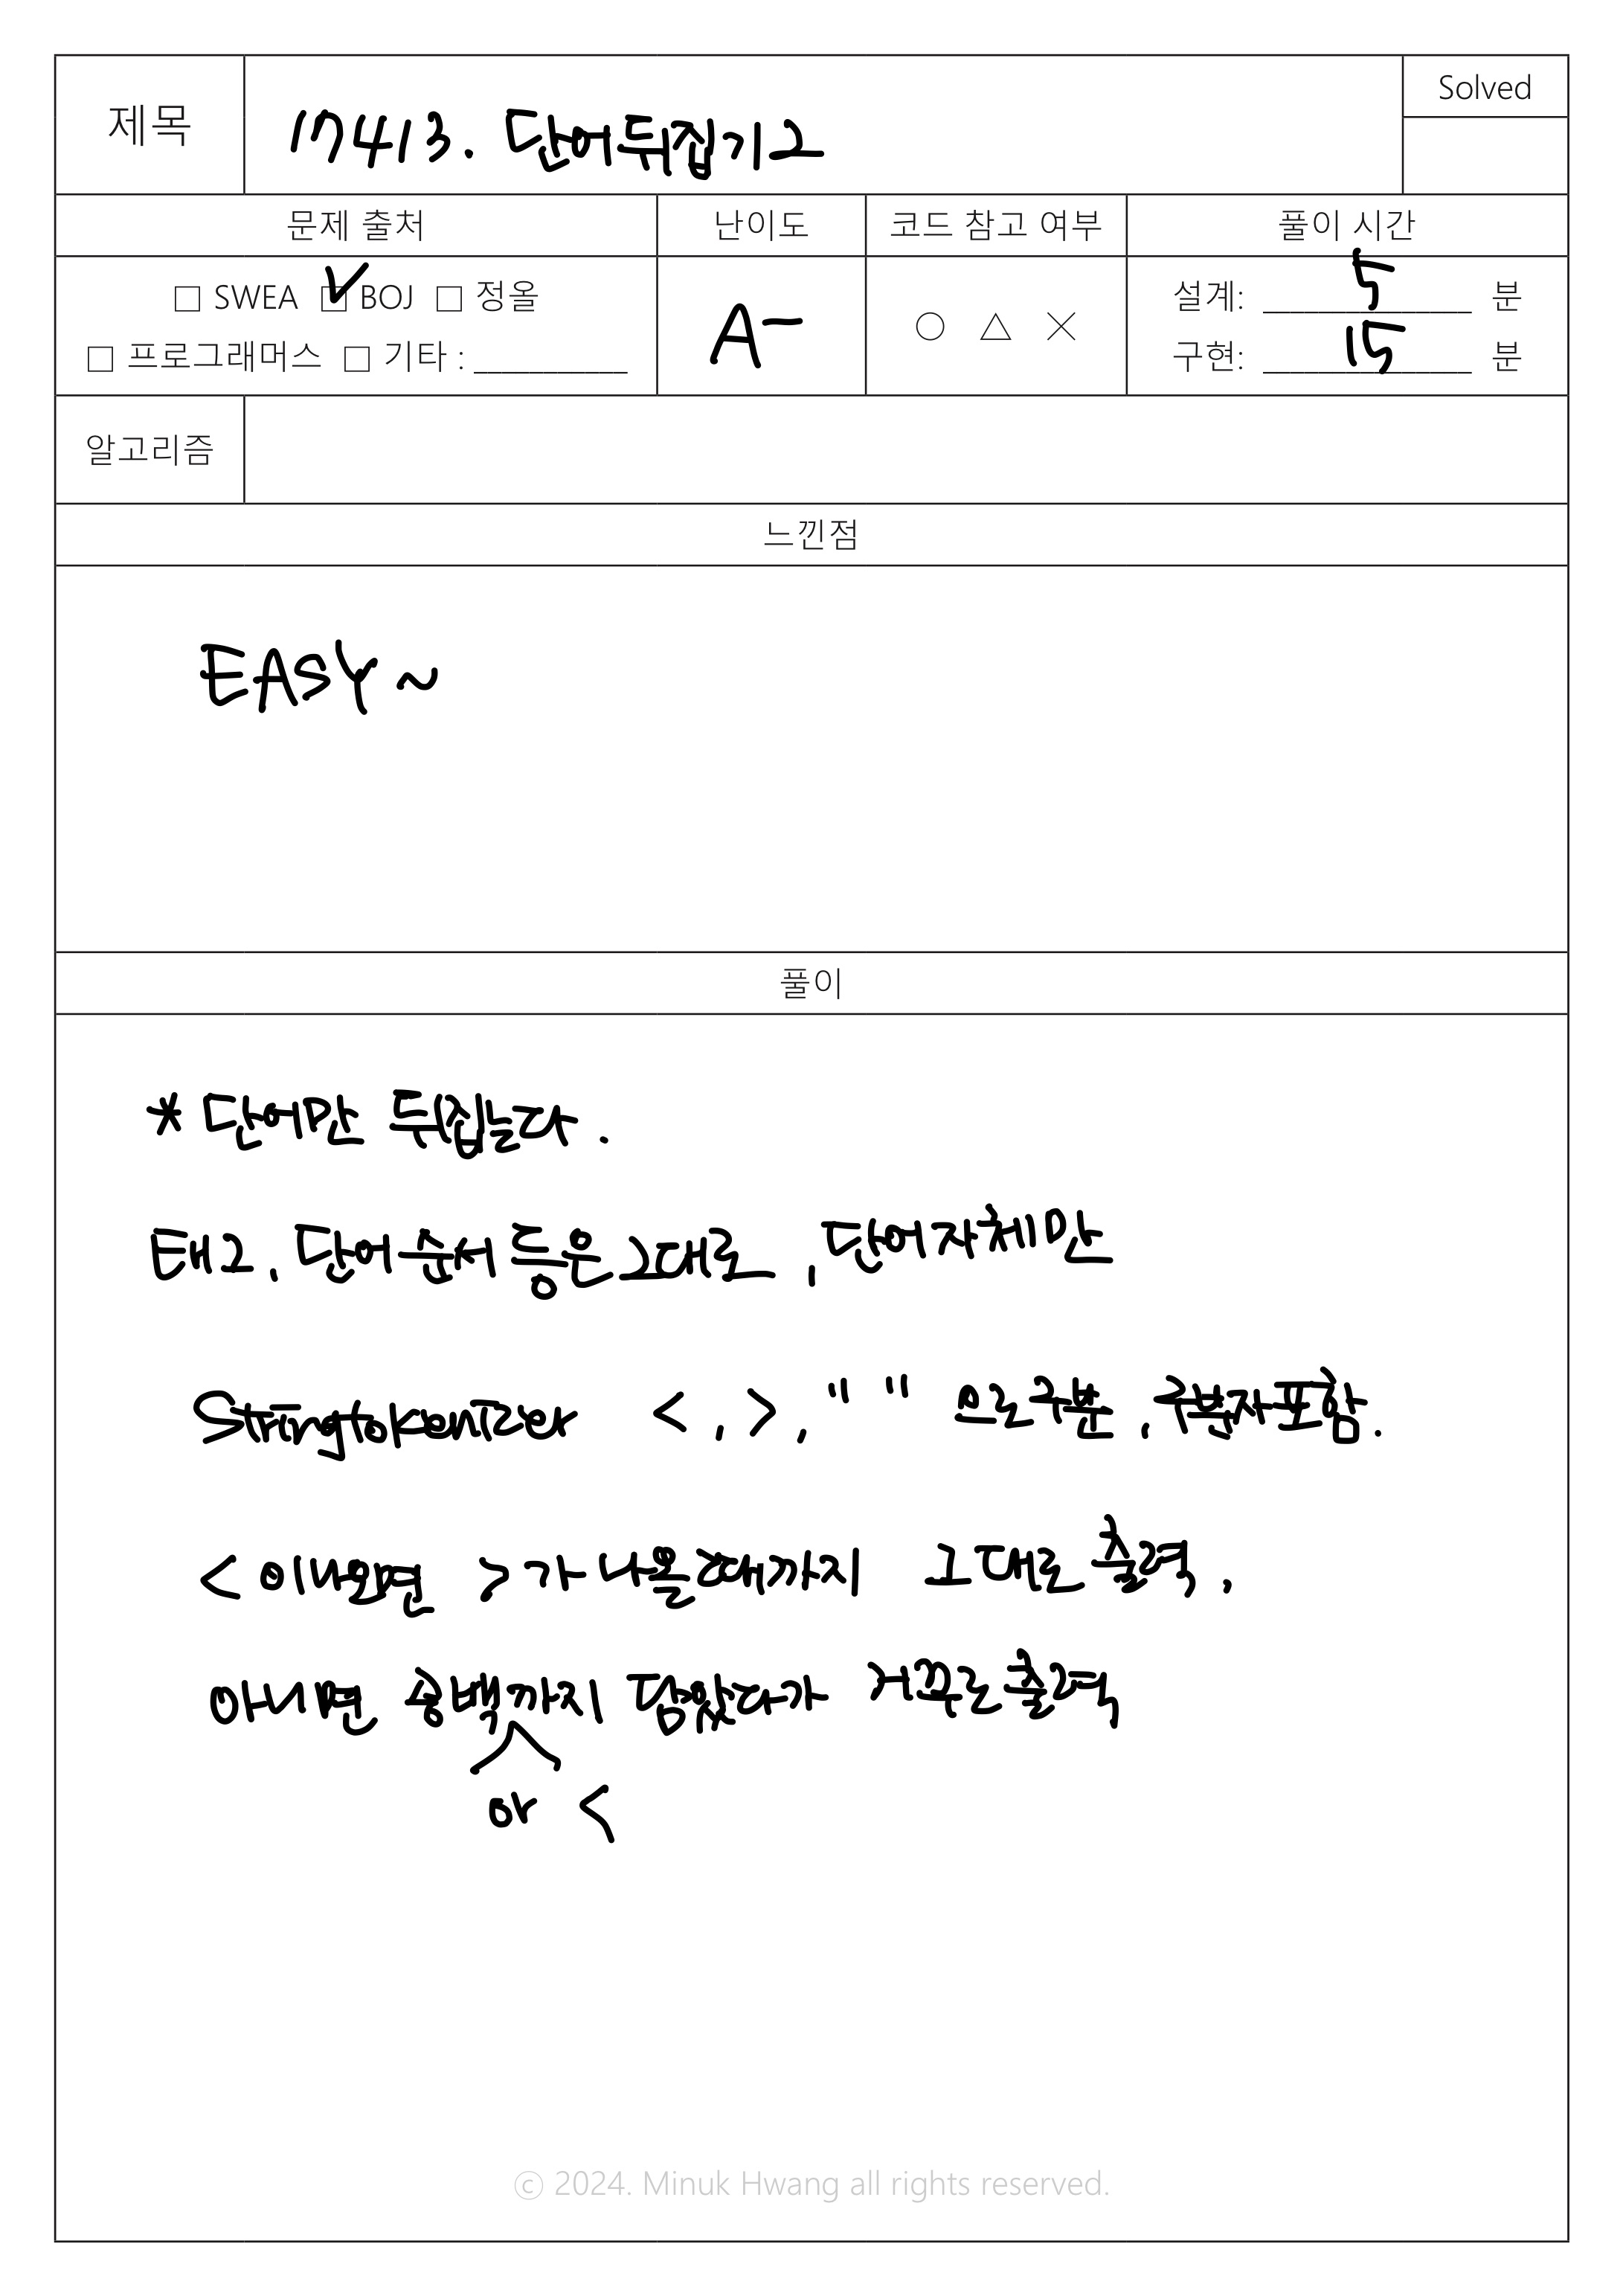 제목 17413. 단어뒤집기2 Solved
문제 출처 난이도 코드 참고 여부 풀이 시간
□ SWEA □ BOJ □ 정올 A- ○ △ × 설계: 5 분
□ 프로그래머스 □ 기타 : __________ 구현: 15 분
알고리즘
느낀점
EASY ~
풀이
* 단어만 뒤집는다.
태그, 단어순서 등은 그대로, 단어자체만
Stringtokenizer < , > , " " 으로 구분, 구분자포함.
< 이나오면 > 가 나올때까지 그대로 출력,
아니면 공백까지 담았다가 거꾸로 출력
or <
© 2024. Minuk Hwang all rights reserved.